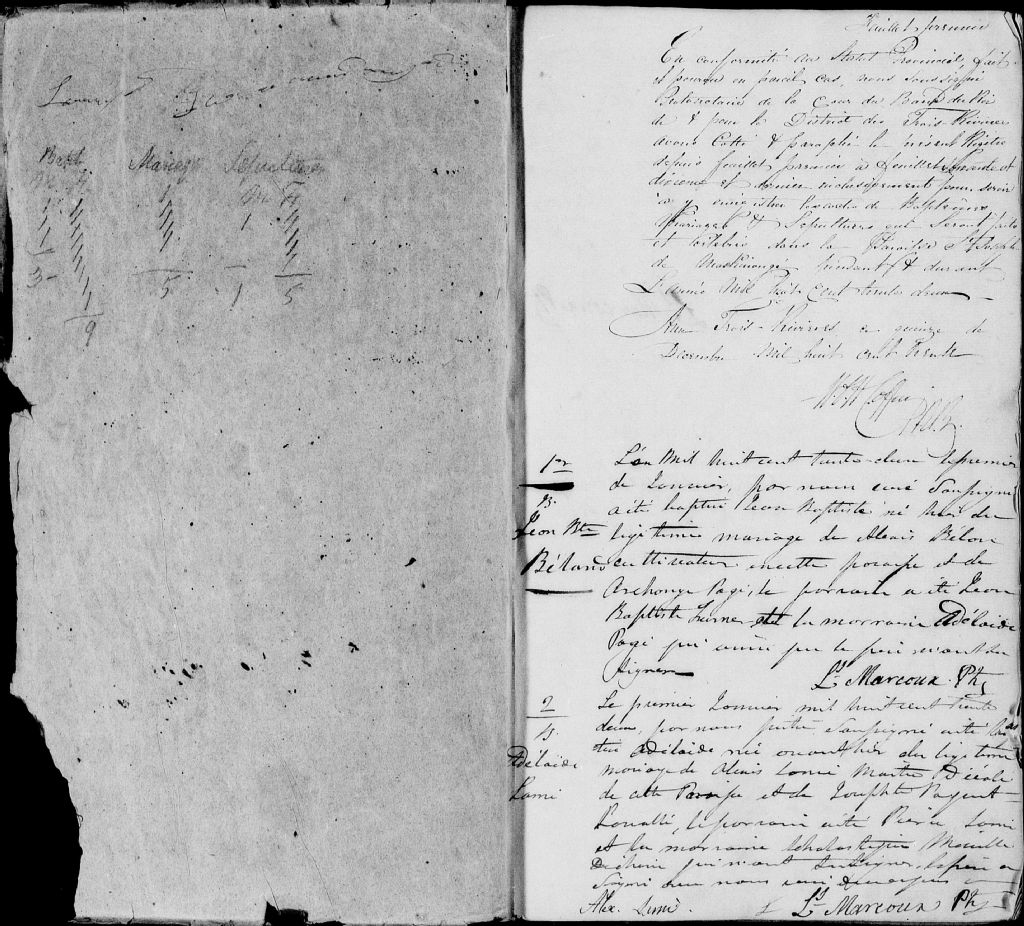 Bapt Mariage Sepultures
M F
M F
3 5 1 5
9
Feuillet premier
En conformité au Statut Provincial, fait
et pourvu en pareil cas, nous soussigné
Protonotaire de la Cour du Banc du Roi
de & pour le District des Trois-Rivières
avons Cotté & paraphé le présent Régitre
depuis feuillet premier à feuillet
dixième et dernier inclusivement pour servir
à y enregistrer les actes de Baptêmes
Mariages & Sépultures qui seront faits
et célébrés dans la Paroisse St Joseph
de Maskinongé pendant & durant
L'année Mil huit Cent trente deux
Aux Trois-Rivières ce quinze de
Décembre Mil huit cent Trente
W Coffin
1er
B.
Léon Bte
Béland
L'an Mil huit cent trente-deux le premier
de Janvier, par nous curé Soussigné
a été baptisé Léon Baptiste né hier du
légitime mariage de Alexis Bélan
cultivateur en cette paroisse et de
Archange Pagé, le parrain a été Léon
Baptiste et la marraine Adélaïde
Pagé qui ainsi que le père n'ont su
signer
Ls Marcoux Ptr
2
B.
Adélaïde
Lami
Le premier Janvier mil huit cent trente
deux, par nous prêtre Soussigné a été bap
tisé Adélaïde née avant hier du légitime
mariage de Alexis Lami Maître d'école
de cette Paroisse et de Josephte Paquet
Lavallé, le parrain a été Pierre Lami
et la marraine Scholastique
qui n'ont su signer, le père a
Signé avec nous
Alex. Lami
Ls Marcoux Ptr